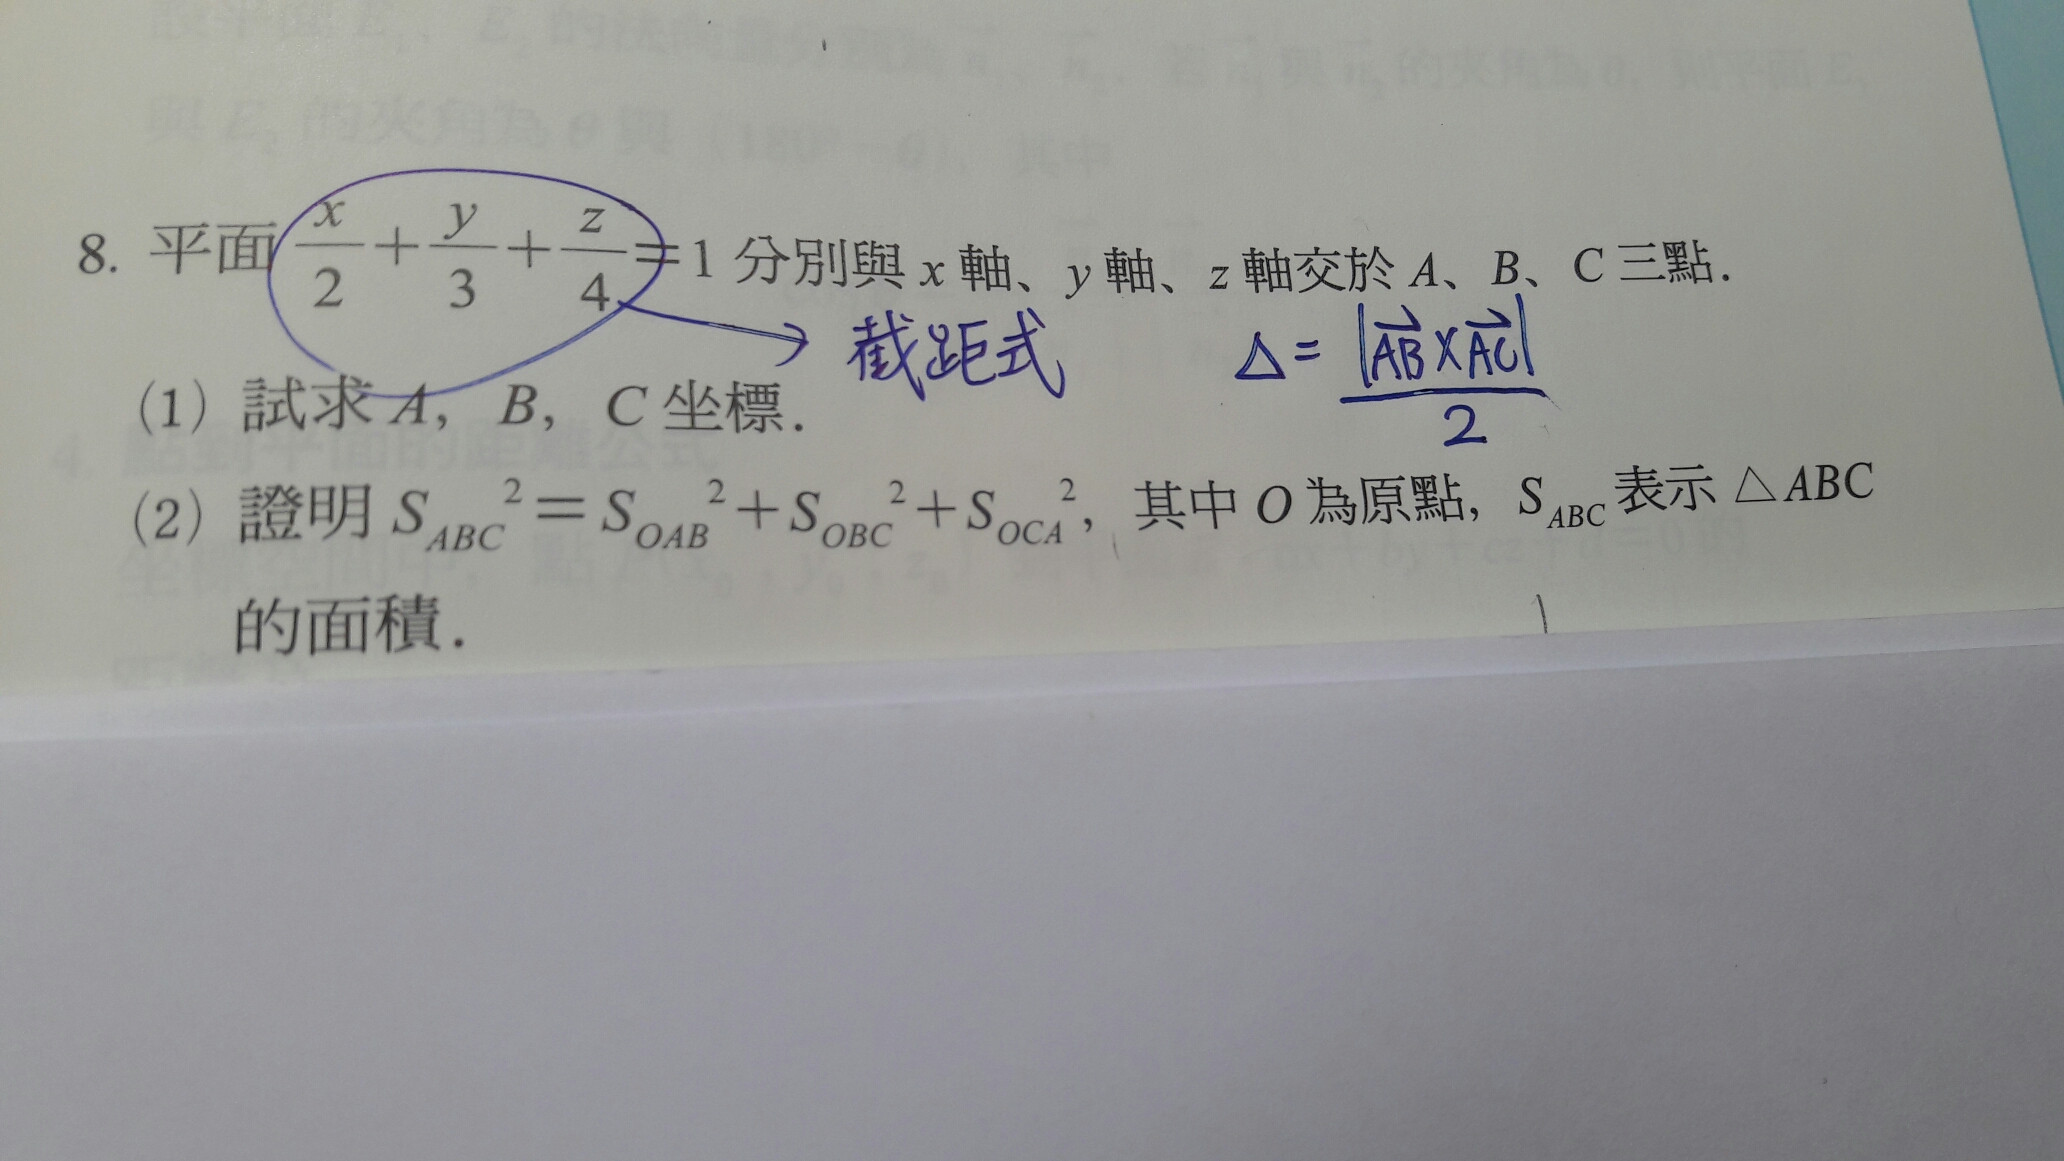 8. 平面 x/2 + y/3 + z/4 = 1 分別與 x 軸、y 軸、z 軸交於 A、B、C 三點.
截距式 △ = |AB⃗ × AC⃗| / 2
(1) 試求 A, B, C 坐標.
(2) 證明 S_ABC² = S_OAB² + S_OBC² + S_OCA², 其中 O 為原點, S_ABC 表示 △ABC
的面積.